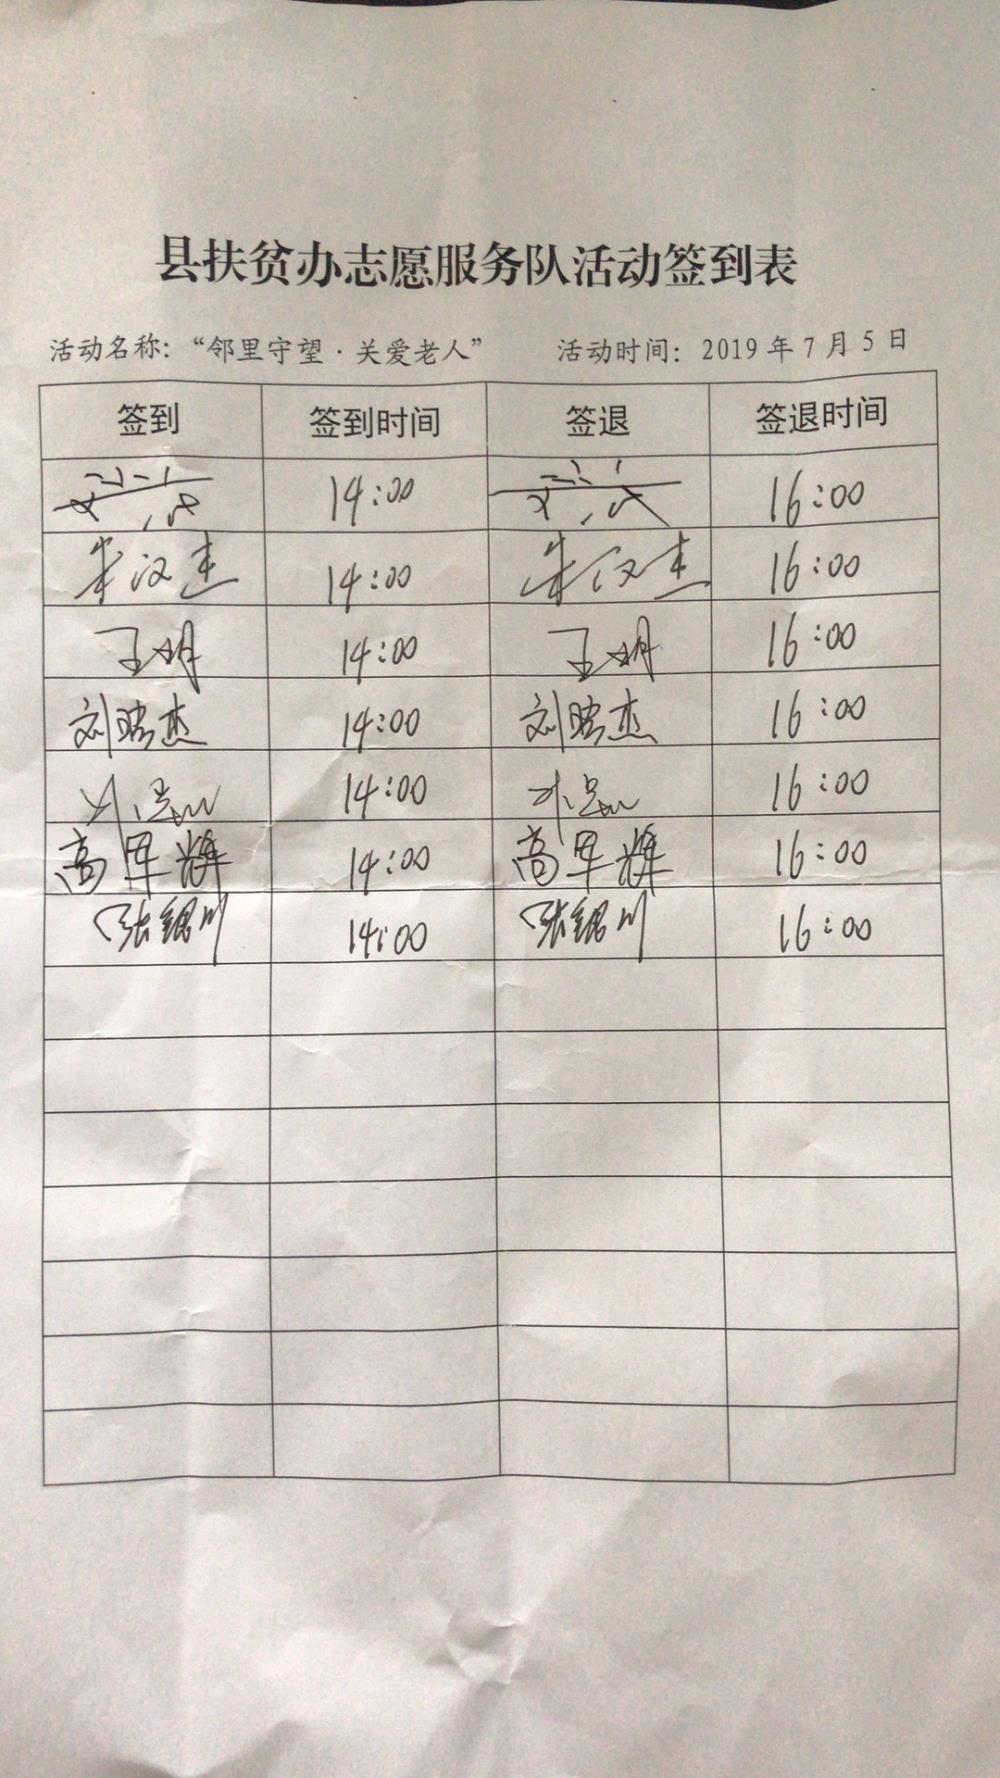 县扶贫办志愿服务队活动签到表
活动名称：“邻里守望·关爱老人” 活动时间：2019年7月5日
签到 签到时间 签退 签退时间
14:00 16:00
朱汉杰 14:00 朱汉杰 16:00
王明 14:00 王明 16:00
刘晓杰 14:00 刘晓杰 16:00
14:00 16:00
高军辉 14:00 高军辉 16:00
张银川 14:00 张银川 16:00